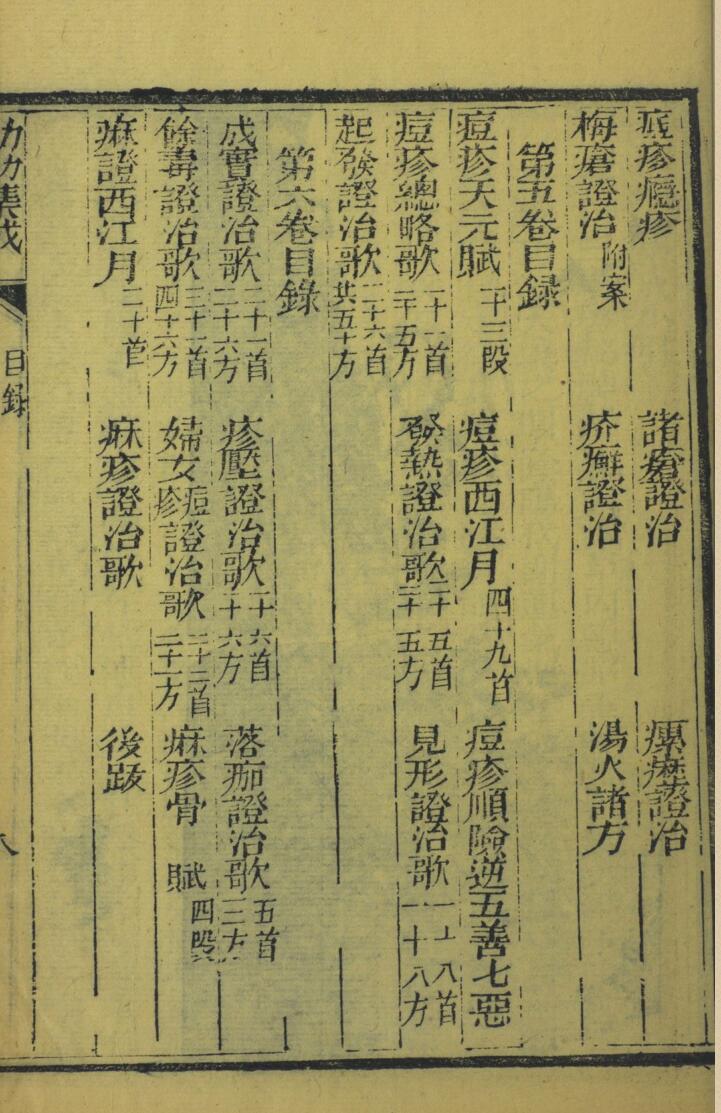 痘疹癮疹　諸瘡證治　瘰癧證治
梅瘡證治附案　疥癬證治　湯火諸方
第五卷目録
痘疹天元賦二十三段　痘疹西江月四十九首　痘疹順險逆五善七惡
痘疹總略歌二十一首二十五方　發熱證治歌二十五首三十五方　見形證治歌八首一十八方
起發證治歌二十六首共五十方
第六卷目錄
成實證治歌二十一首二十六方　疹壓證治歌二十六首二十六方　落痂證治歌五首三方
餘毒證治歌三十一首四十六方　婦女痘疹證治歌三十二首二十一方　麻疹骨賦四段
麻證西江月二十首　麻疹證治歌　後跋
幼幼集成　目録　八